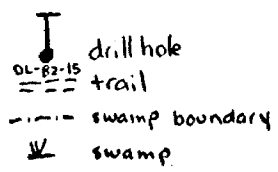 drill hole
DL-82-15
trail
swamp boundary
swamp